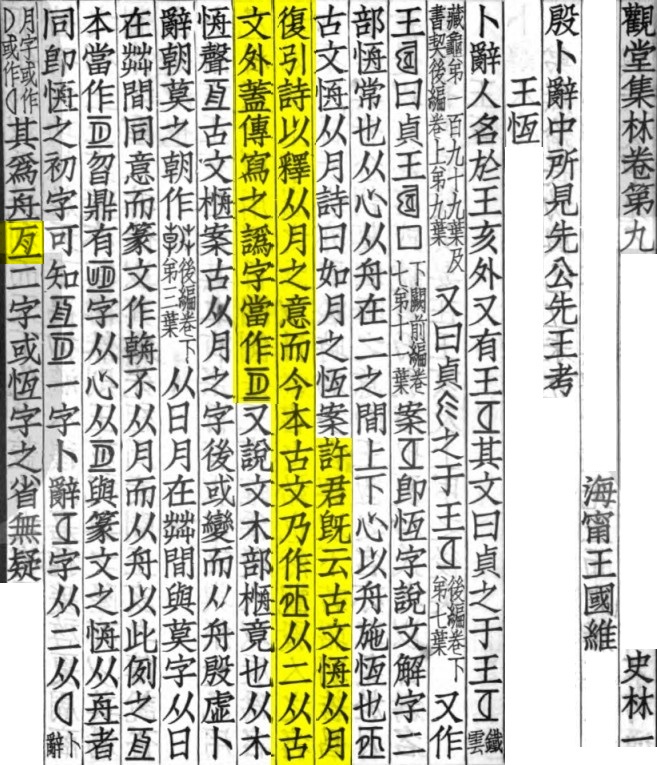 觀堂集林卷第九 史林一
海甯王國維
殷卜辭中所見先公先王考
王恆
卜辭人名於王亥外又有王其文曰貞之于王鐵雲
藏龜第一百九十九葉及書契後編卷上第九葉又曰貞之于王後編卷下第七葉又作
王曰貞王□下闕前編卷七第十一葉案即恆字說文解字二
部𢛢常也从心从舟在二之間上下心以舟施恆也𠄨
古文𢛢从月詩曰如月之恆案許君既云古文𢛢从月
復引詩以釋从月之意而今本古文乃作𠄨从二从古
文外蓋傳寫之譌字當作又說文木部㮓竟也从木
𢛢聲亙古文㮓案古从月之字後或變而从舟殷虛卜
辭朝莫之朝作後編卷下第三葉从日月在茻間與莫字从日
在茻間同意而篆文作不从月而从舟以此例之亙
本當作曶鼎有字从心从與篆文之𢛢从者
同即𢛢之初字可知亙一字卜辭字从二从卜辭
月字或作或作其為舟亙二字或恆字之省無疑